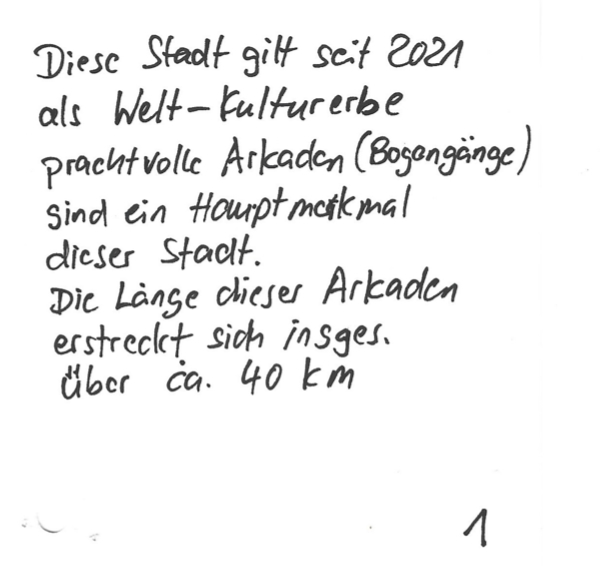 Diese Stadt gilt seit 2021
als Welt-Kulturerbe
prachtvolle Arkaden (Bogengänge)
sind ein Hauptmerkmal
dieser Stadt.
Die Länge dieser Arkaden
erstreckt sich insges.
über ca. 40 km
1